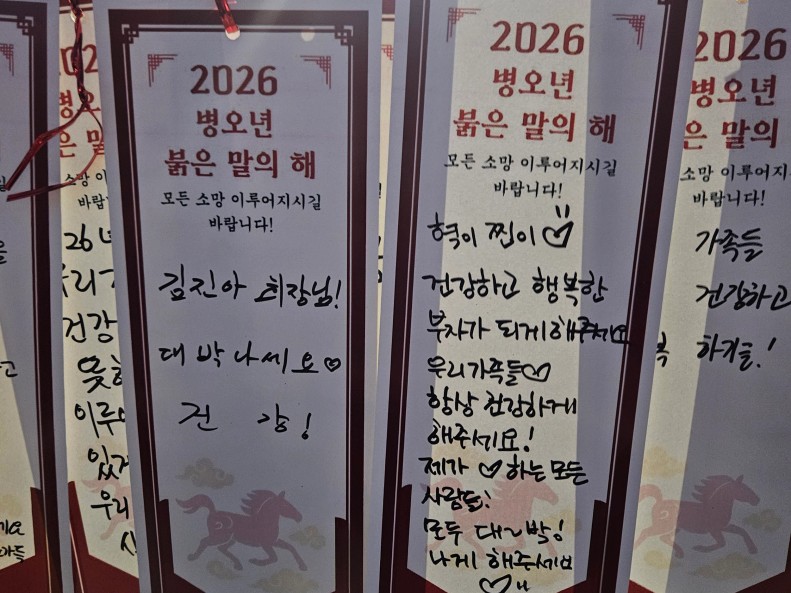 2026
병오년
붉은 말의 해
모든 소망 이루어지시길
바랍니다!
김진아 회장님!
대박나세요♡
건강!
2026
병오년
붉은 말의 해
모든 소망 이루어지시길
바랍니다!
혁이 찐이♡
건강하고 행복한
부자가 되게해주세요
우리가족들♡
항상 건강하게
해주세요!
제가 ♡하는 모든
사람들!
모두 대~박!
나게 해주세요
♡
2026
병오년
붉은 말의
소망 이루어지시
바랍니다!
가족들
건강하고
하기를!
소망 이루
바랍
26
건강
이루
있게
우리